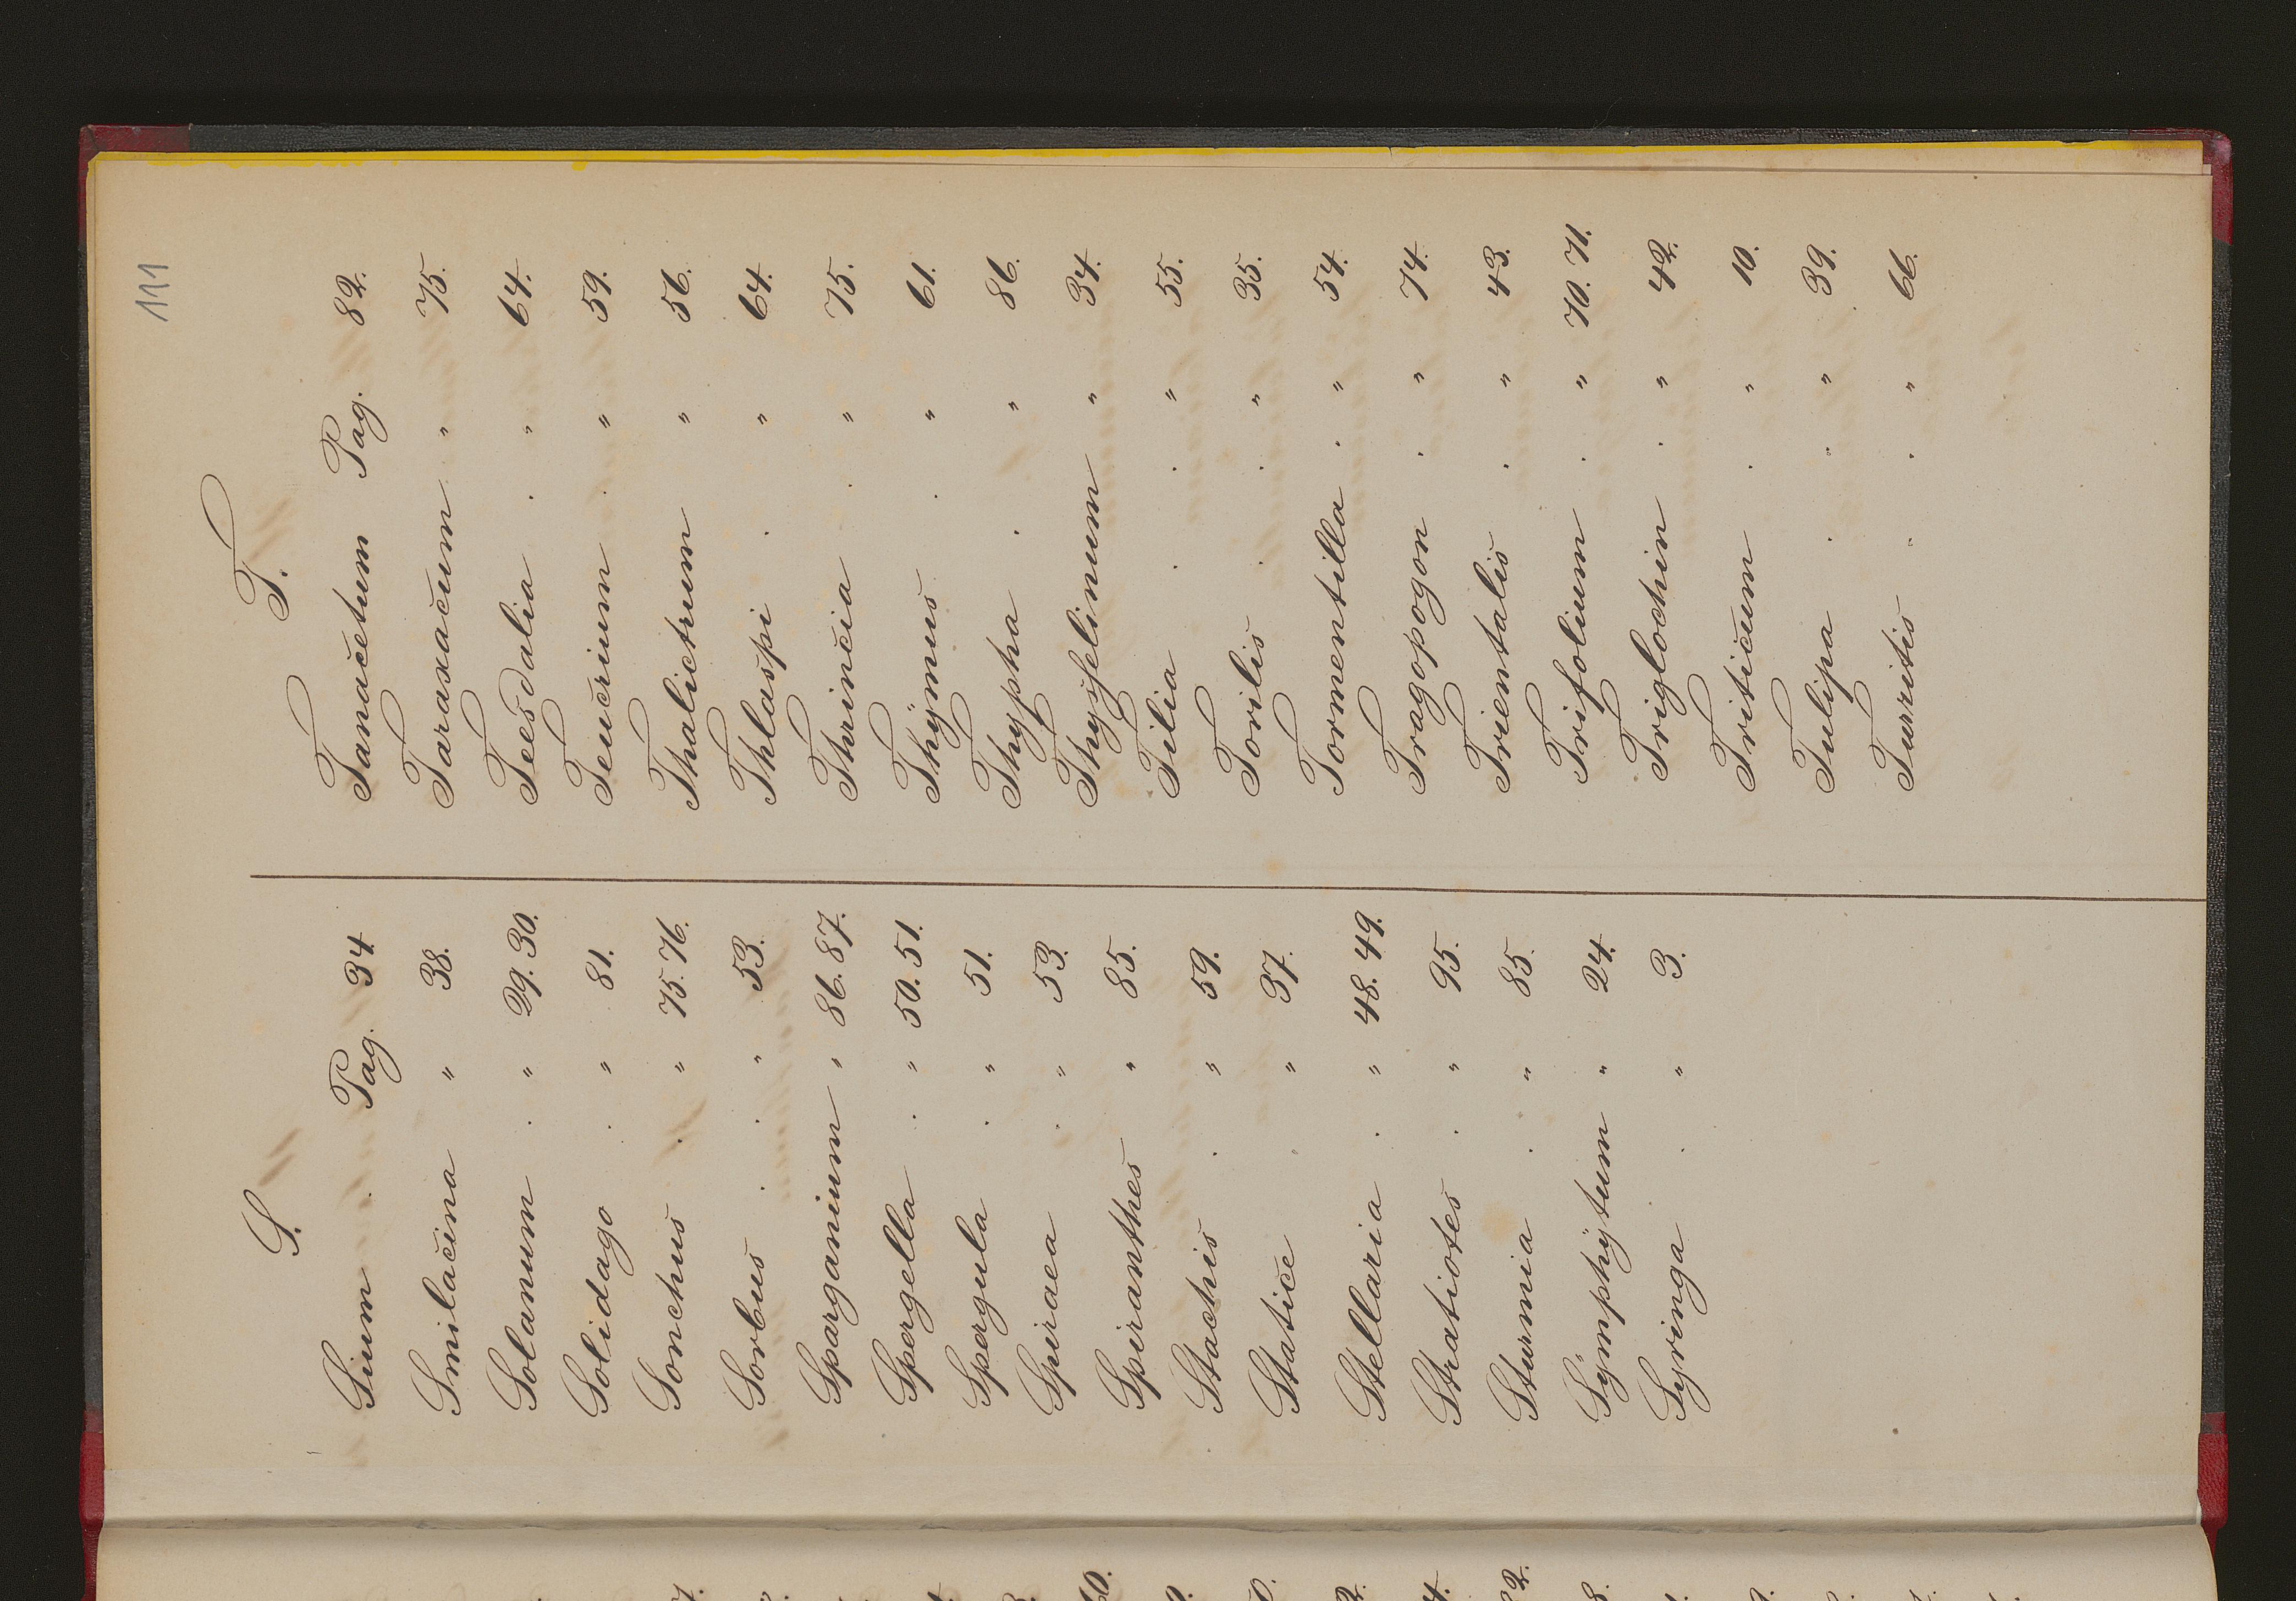 111
S.
Sium . Pag. 34.
Smilacina " 38.
Solanum . " 29. 30.
Solidago . " 81.
Sonchus . " 75. 76.
Sorbus . . " 53.
Sparganium " 86. 87.
Spergella . " 50. 51.
Spergula . " 51.
Spiraea . " 53.
Spiranthes " 85.
Stachis . " 59.
Statice . " 37.
Stellaria . " 48. 49.
Stratiotes . " 95.
Sturmia . " 85.
Sÿmphÿtum " 24.
Syringa . " 3.
T.
Tanacetum Pag. 82.
Taraxacum . " 75.
Teesdalia . " 64.
Teucrium . " 59.
Thalictrum " 56.
Thlaspi . " 64.
Thrincia . " 75.
Thÿmus . " 61.
Thypha . " 86.
Thysselinum " 34.
Tilia . . " 55.
Torilis . . " 35.
Tormentilla . " 54.
Tragopogon . " 74.
Trientalis . " 43.
Trifolium . " 70. 71.
Triglochin . " 42.
Triticum . " 10.
Tulipa . . " 39.
Turritis . . " 66.